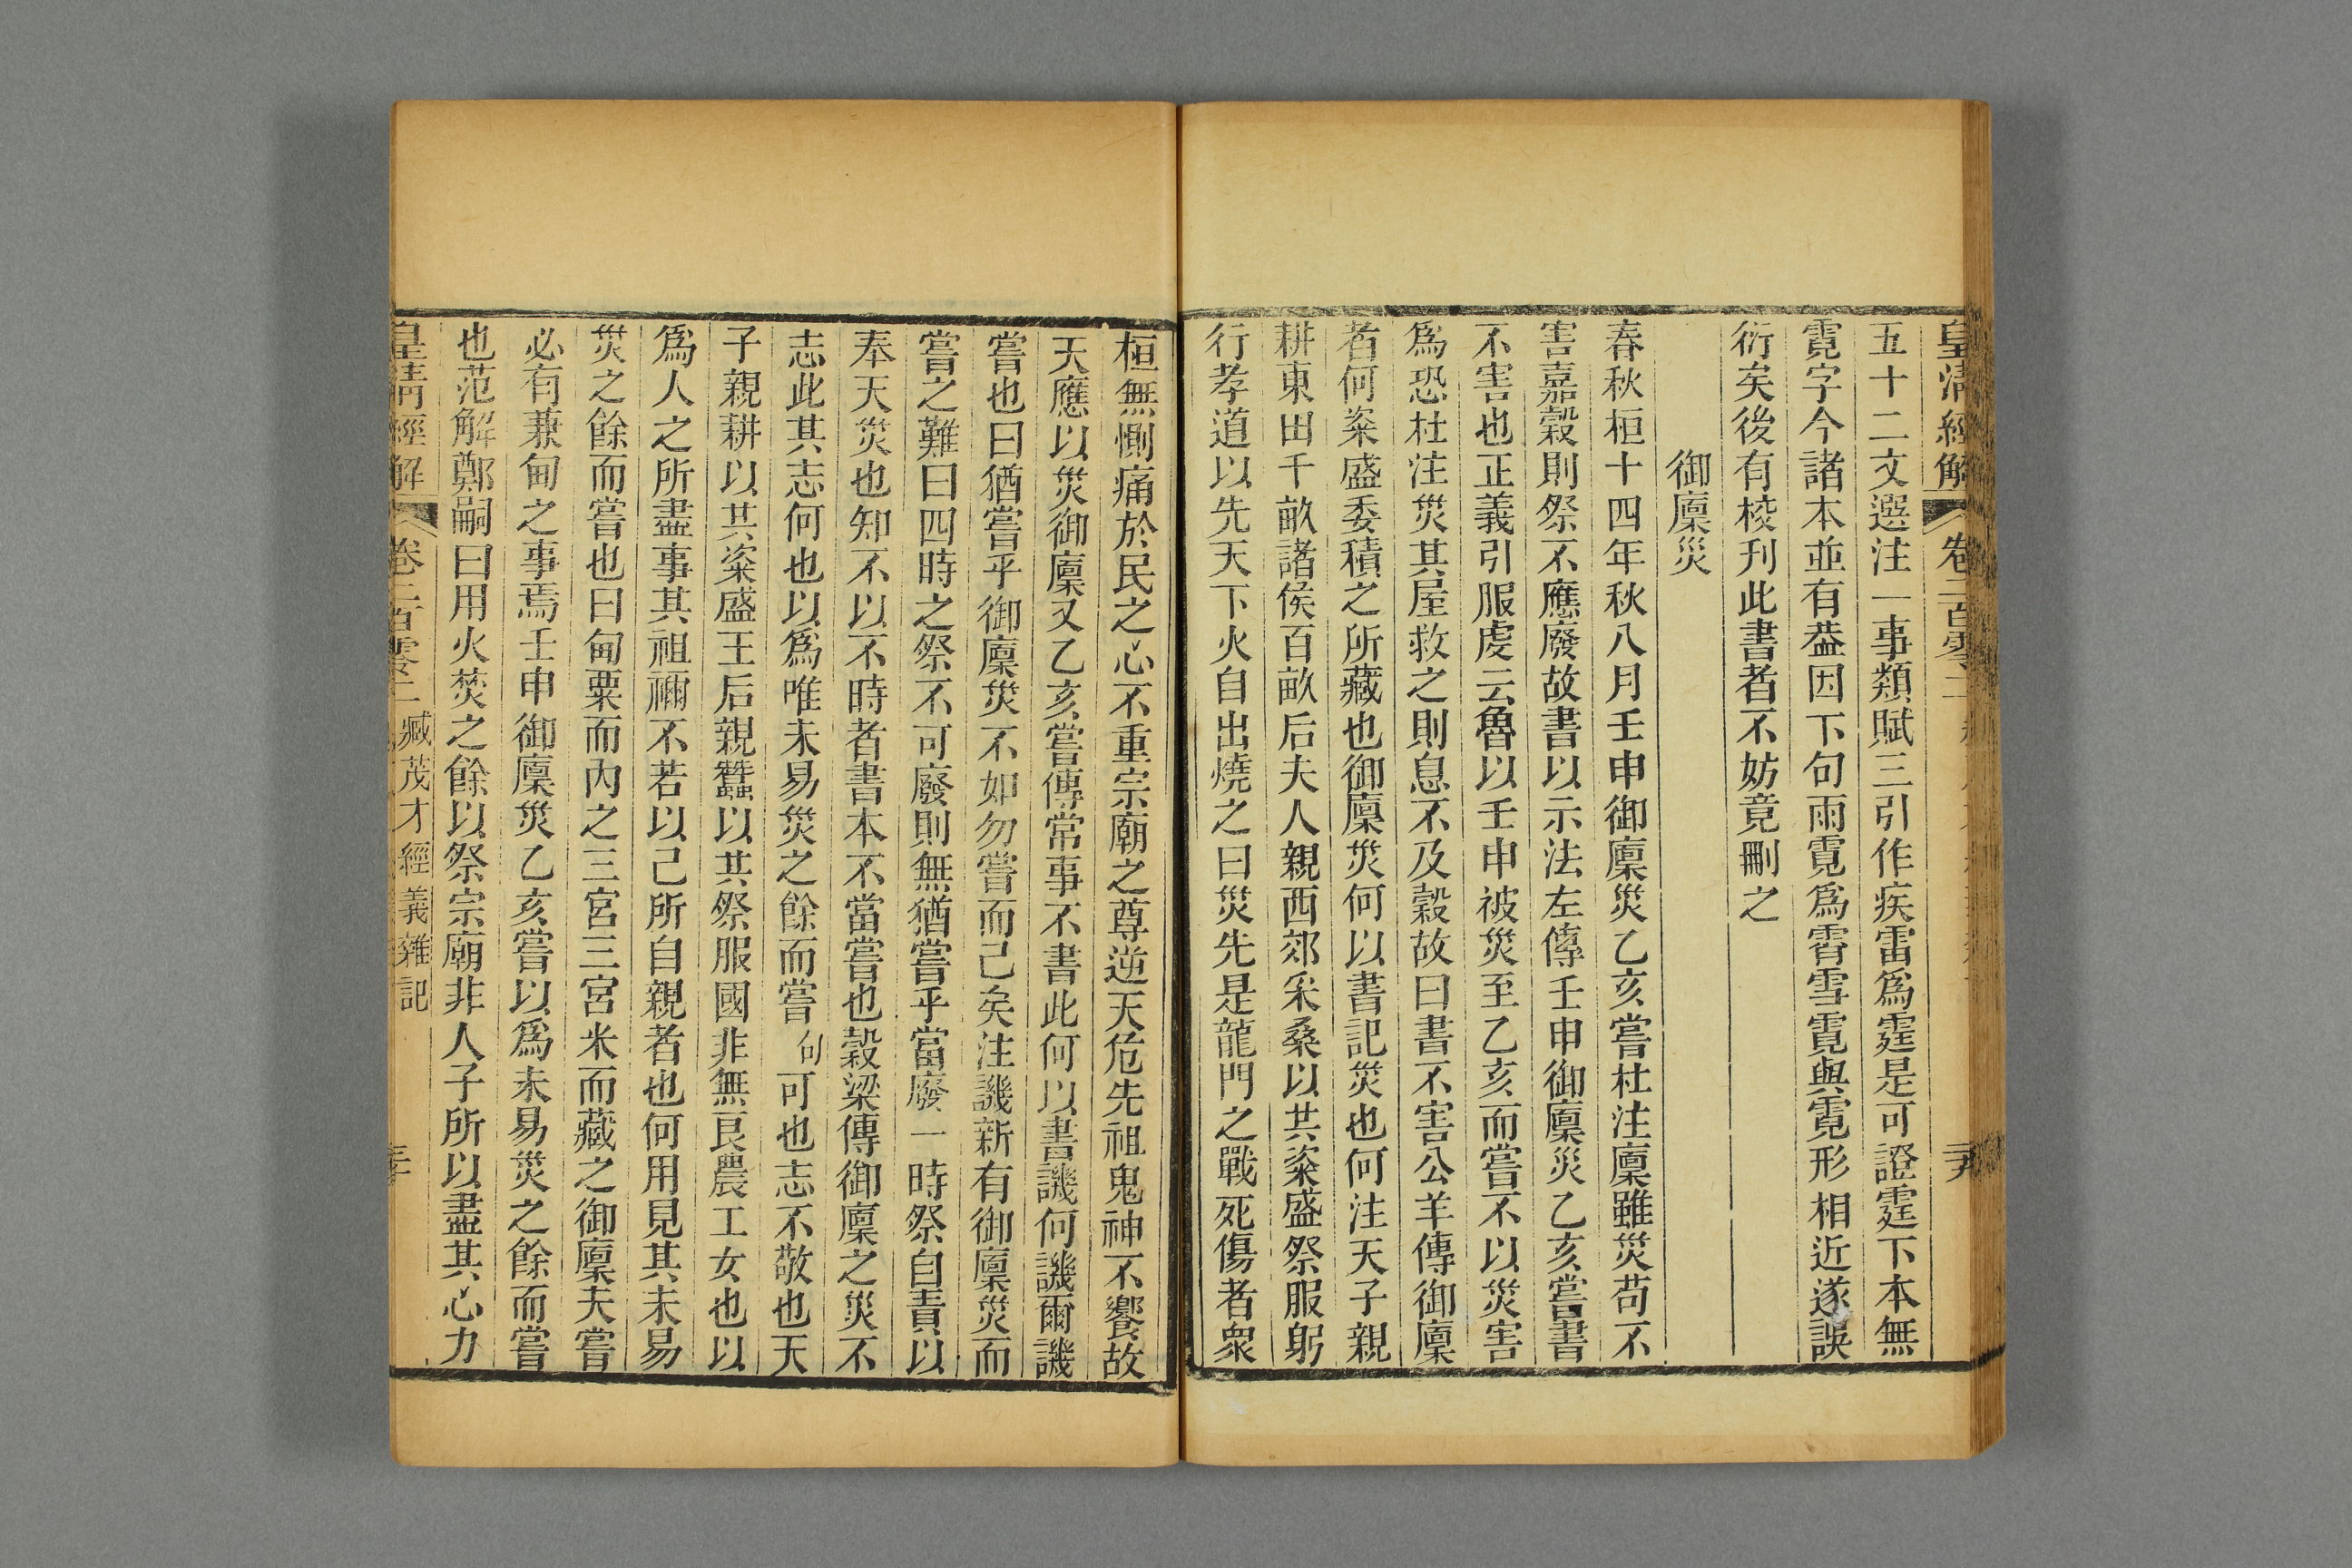 皇淸經解
卷二百零二
五十二文選注一事類賦三引作疾雷爲霆是可證霆下本無
霓字今諸本並有葢因下句雨霓爲霄雪霓與霓形相近遂誤
衍矣後有棱刊此書者不妨竟刪之
御廩災
春秋桓十四年秋八月壬申御廩災乙亥嘗杜注廩雖災苟不
害嘉穀則祭不應廢故書以示法左傳壬申御廩災乙亥嘗書
不害也正義引服虔云魯以壬申被災至乙亥而嘗不以災害
爲恐杜注災其屋救之則息不及穀故曰書不害公羊傳御廩
者何粢盛委積之所藏也御廩災何以書記災也何注天子親
耕東田千畝諸侯百畝后夫人親西郊采桑以共粢盛祭服躬
行孝道以先天下火自出燒之曰災先是龍門之戰死傷者衆
桓無惻痛於民之心不重宗廟之尊逆天危先祖鬼神不饗故
天應以災御廩又乙亥嘗傳常事不書此何以書譏何譏爾譏
嘗也曰猶嘗乎御廩災不如勿嘗而己矣注譏新有御廩災而
嘗之難曰四時之祭不可廢則無猶嘗乎當廢一時祭自責以
奉天災也知不以不時者書本不當嘗也穀梁傳御廩之災不
志此其志何也以爲唯未易災之餘而嘗句可也志不敬也天
子親耕以共粢盛王后親蠶以共祭服國非無良農工女也以
爲人之所盡事其祖禰不若以己所自親者也何用見其未易
災之餘而嘗也曰甸粟而內之三宮三宮米而藏之御廩夫嘗
必有兼甸之事焉壬申御廩災乙亥嘗以爲未易災之餘而嘗
也范解鄭嗣曰用火焚之餘以祭宗廟非人子所以盡其心力
皇淸經解
卷二百零二
臧茂才經義雜記
三十